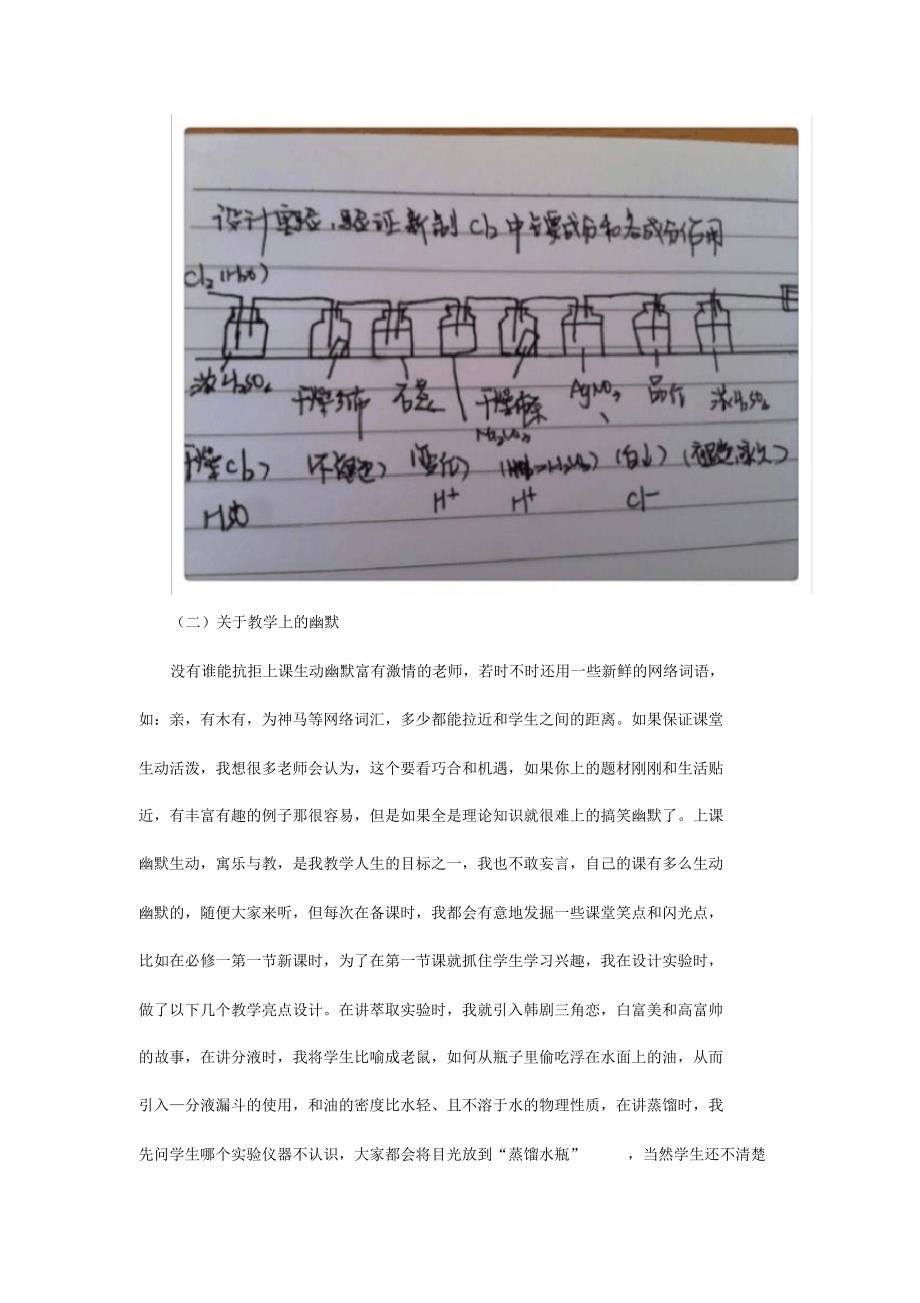 设计实验，验证新制Cl2中主要成分和各成分作用
Cl2(H2O)
浓H2SO4 干燥布 石蕊 干燥布条 AgNO3 品红 浓H2SO4
Na2CO3
干燥Cl2) (变红) (白↓)
H2O H+ H+ Cl-
（二）关于教学上的幽默
没有谁能抗拒上课生动幽默富有激情的老师，若时不时还用一些新鲜的网络词语，
如：亲，有木有，为神马等网络词汇，多少都能拉近和学生之间的距离。如果保证课堂
生动活泼，我想很多老师会认为，这个要看巧合和机遇，如果你上的题材刚刚和生活贴
近，有丰富有趣的例子那很容易，但是如果全是理论知识就很难上的搞笑幽默了。上课
幽默生动，寓乐与教，是我教学人生的目标之一，我也不敢妄言，自己的课有多么生动
幽默的，随便大家来听，但每次在备课时，我都会有意地发掘一些课堂笑点和闪光点，
比如在必修一第一节新课时，为了在第一节课就抓住学生学习兴趣，我在设计实验时，
做了以下几个教学亮点设计。在讲萃取实验时，我就引入韩剧三角恋，白富美和高富帅
的故事，在讲分液时，我将学生比喻成老鼠，如何从瓶子里偷吃浮在水面上的油，从而
引入—分液漏斗的使用，和油的密度比水轻、且不溶于水的物理性质，在讲蒸馏时，我
先问学生哪个实验仪器不认识，大家都会将目光放到“蒸馏水瓶” ，当然学生还不清楚